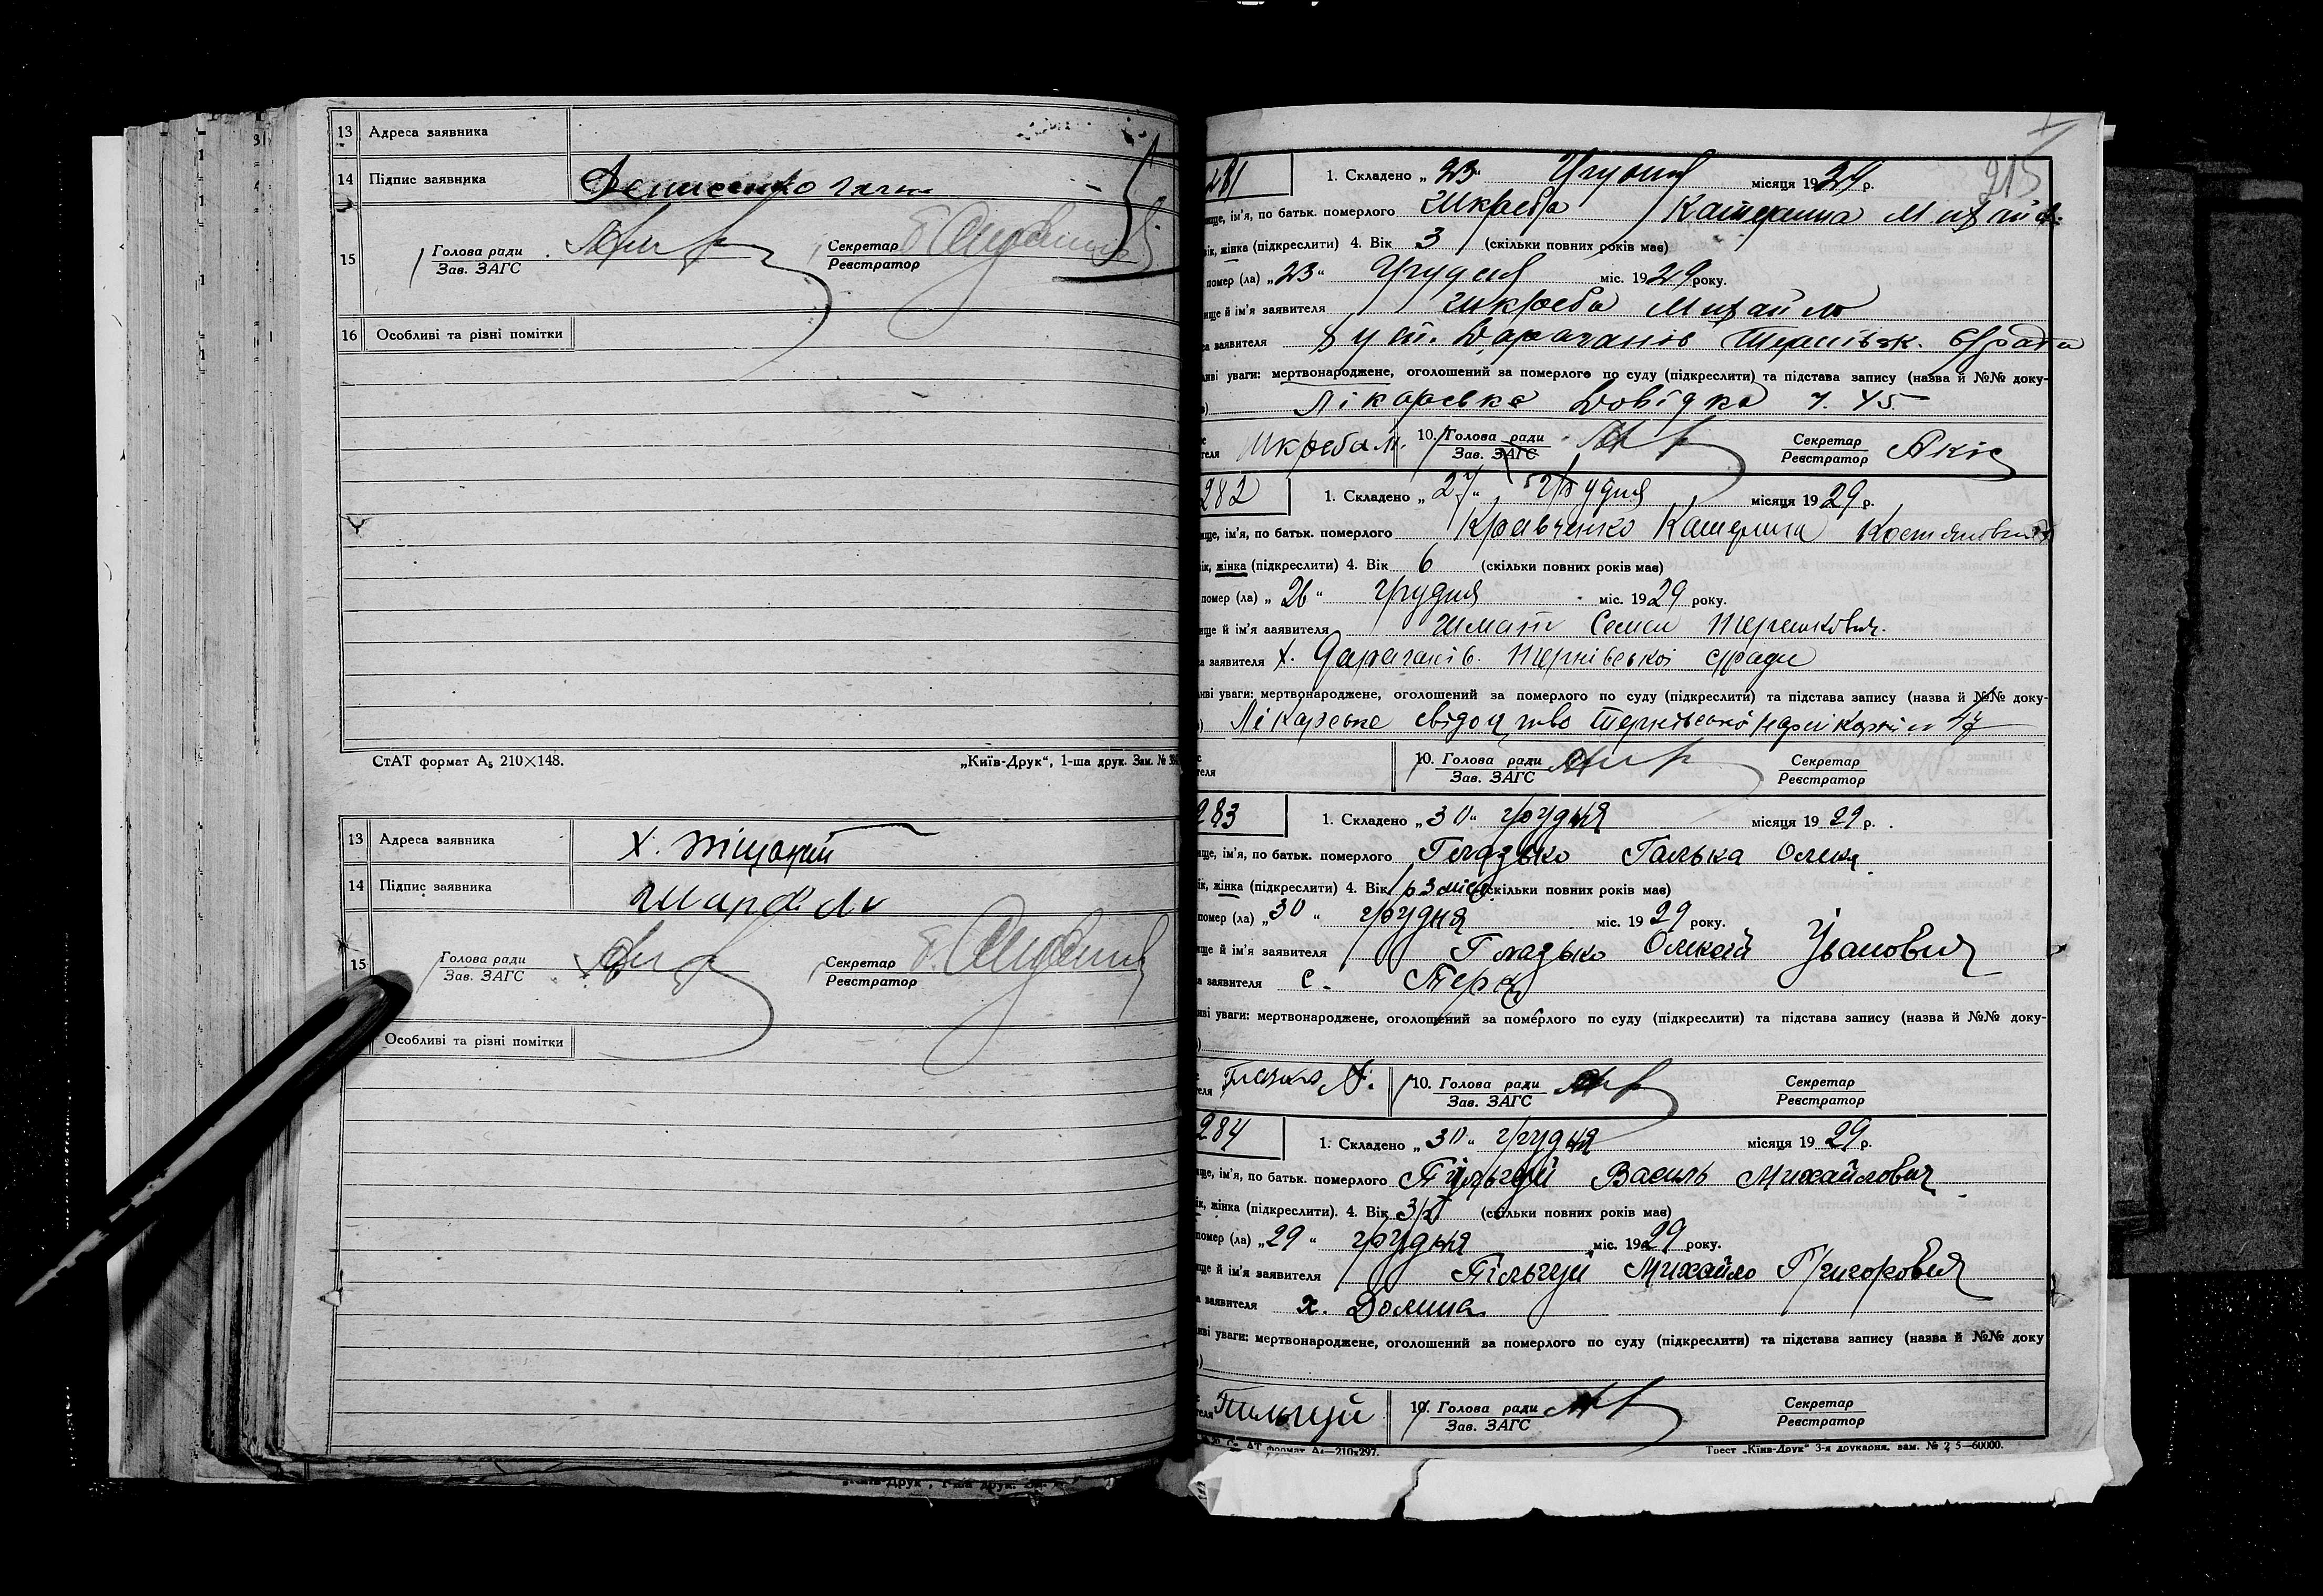 13 Адреса заявника
14 Підпис заявника Денисенко
15 Голова ради Зав. ЗАГС Секретар Реєстратор
16 Особливі та різні помітки
СтАТ формат А₅ 210×148. „Київ-Друк“, 1-ша друк. Зам. №
13 Адреса заявника х. Піщаний
14 Підпис заявника
15 Голова ради Зав. ЗАГС Секретар Реєстратор
Особливі та різні помітки
„Київ-Друк“, 1-ша друк.
215
281 1. Складено „23“ Грудня місяця 1929 р.
ище, ім'я, по батьк. померлого Шкреба Катерина Михайл.
ік, жінка (підкреслити) 4. Вік 3 (скільки повних років має)
помер (ла) „23“ Грудня міс. 1929 року.
ище й ім'я заявителя Шкреба Михайло
са заявителя Дараганів Тернівськ. с/ради
иві уваги: мертвонароджене, оголошений за померлого по суду (підкреслити) та підстава запису (назва й №№ доку-
Лікарська довідка ч. 45
теля Шкреба М. 10. Голова ради Зав. ЗАГС Секретар Реєстратор
282 1. Складено „27“ Грудня місяця 1929 р.
ище, ім'я, по батьк. померлого Кравченко Катерина
ік, жінка (підкреслити) 4. Вік 6 (скільки повних років має)
помер (ла) „26“ Грудня міс. 1929 року.
ище й ім'я заявителя Шмат Семен
а заявителя х. Дараганів. Тернівської с/ради
иві уваги: мертвонароджене, оголошений за померлого по суду (підкреслити) та підстава запису (назва й №№ доку-
Лікарське свідоцтво Тернівської 47
теля 10. Голова ради Зав. ЗАГС Секретар Реєстратор
283 1. Складено „30“ грудня місяця 1929 р.
ище, ім'я, по батьк. померлого Глазько Галька Олекс.
ік, жінка (підкреслити) 4. Вік 3 міс. (скільки повних років має)
помер (ла) „30“ грудня міс. 1929 року.
ище й ім'я заявителя Глазько Олексій Іванович
а заявителя с. Терни
иві уваги: мертвонароджене, оголошений за померлого по суду (підкреслити) та підстава запису (назва й №№ доку-
теля 10. Голова ради Зав. ЗАГС Секретар Реєстратор
284 1. Складено „30“ грудня місяця 1929 р.
ище, ім'я, по батьк. померлого Пільгуй Василь Михайлович
ік, жінка (підкреслити). 4. Вік (скільки повних років має)
помер (ла) „29“ грудня міс. 1929 року.
ище й ім'я заявителя Пільгуй Михайло Григорович
а заявителя х. Долина
иві уваги: мертвонароджене, оголошений за померлого по суду (підкреслити) та підстава запису (назва й №№ доку
теля Пильгуй 10. Голова ради Зав. ЗАГС Секретар Реєстратор
АТ формат А₄—210×297. Трест „Київ-Друк“ 3-я друкарня. зам. № 2 5—60000.